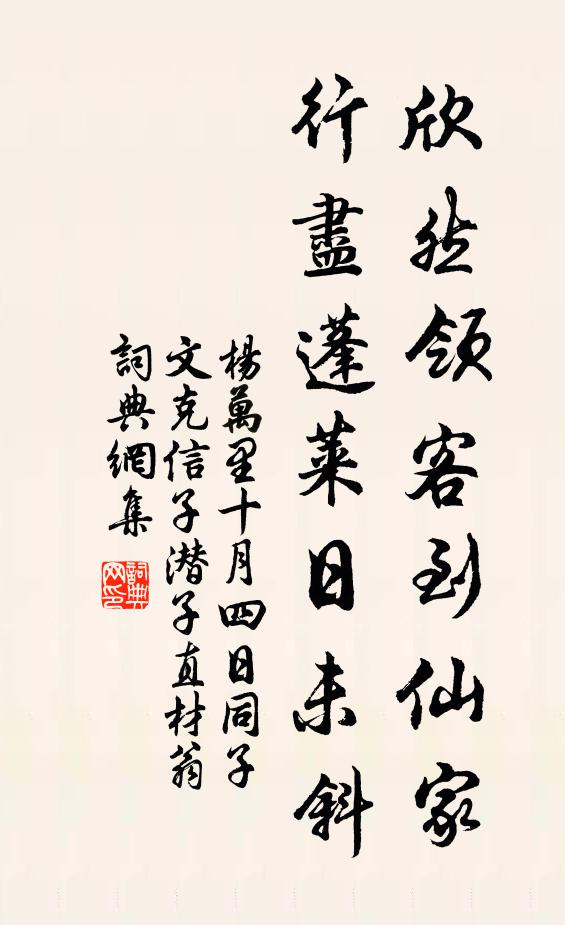 欣然領客到仙家
行盡蓬萊日未斜
楊萬里十月四日同子
文克信子潜子直材翁
詞典網集
詞典网印